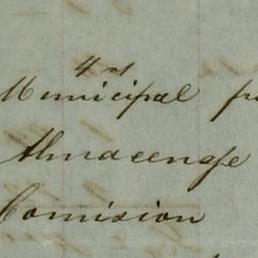 Municipal
Almacenaje
Comision